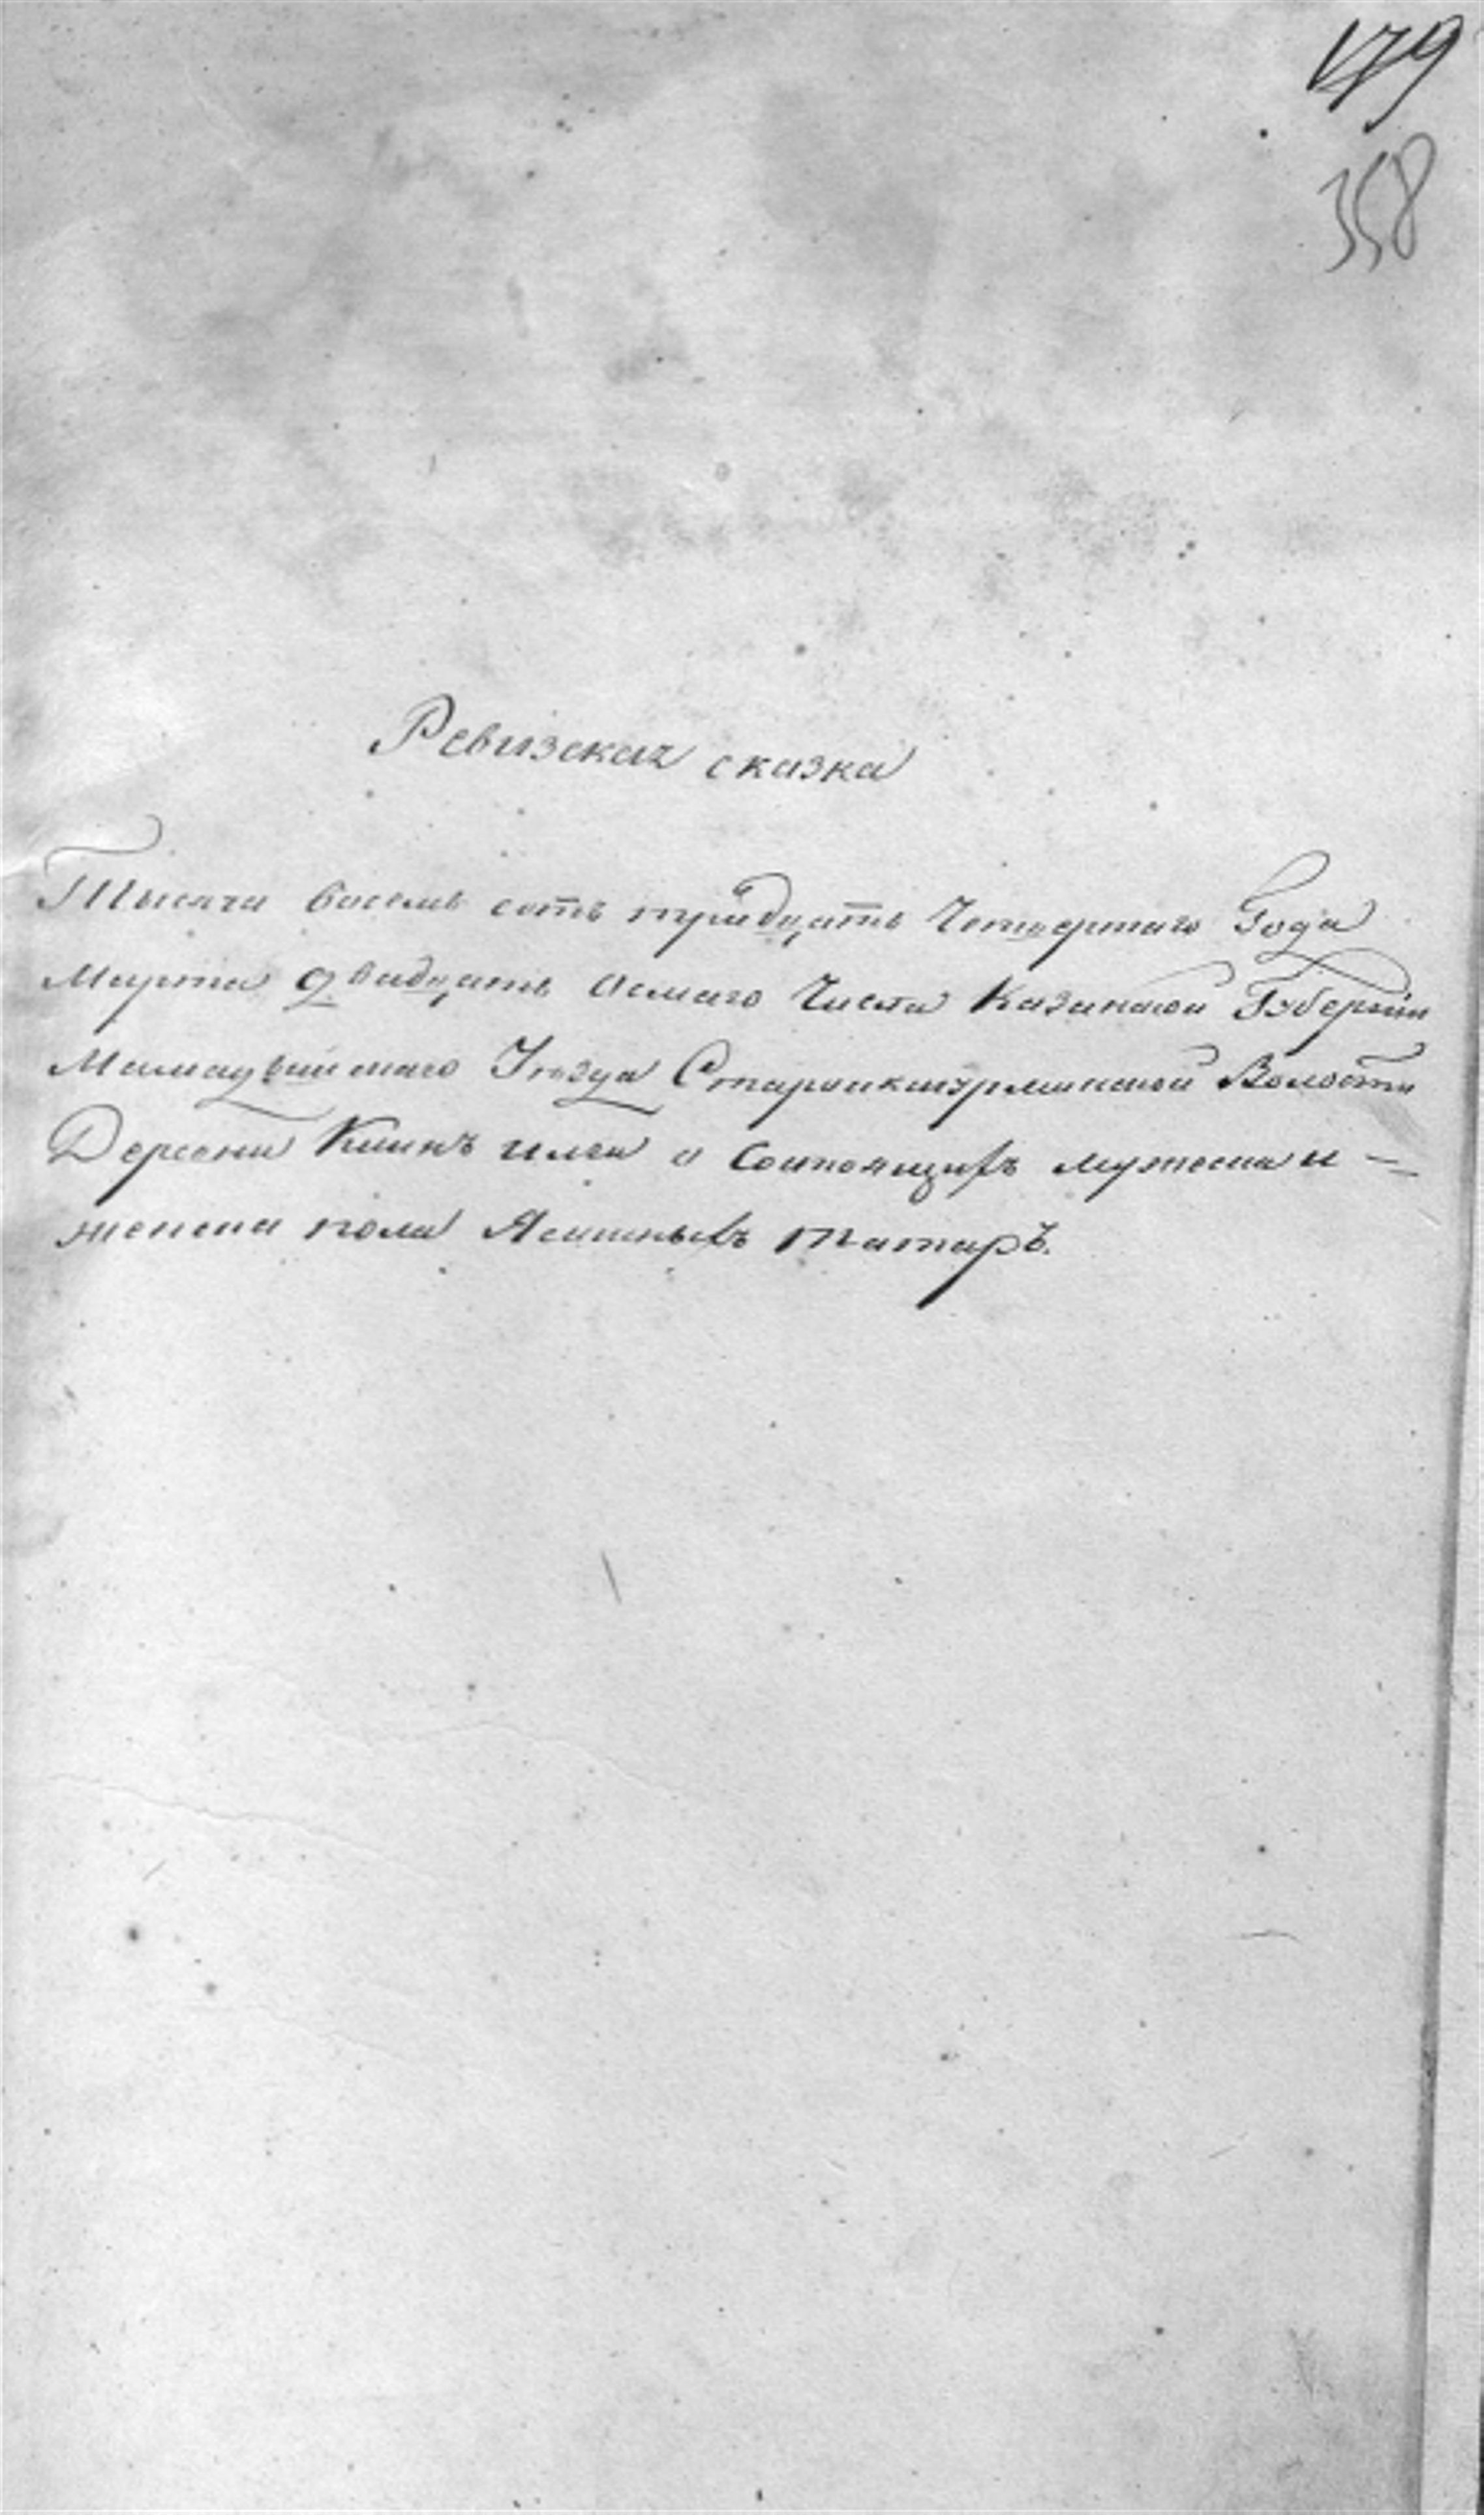 179
358
Ревизская сказка
Тысяча восемь сотъ тридцать Четвертаго Года
Марта двадцать осмаго Числа Казанской Губернiи
Мамадышскаго Уезда Старо Волости
Деревни илга о Состоящихъ мужеска и =
женска пола Ясашныхъ татаръ.